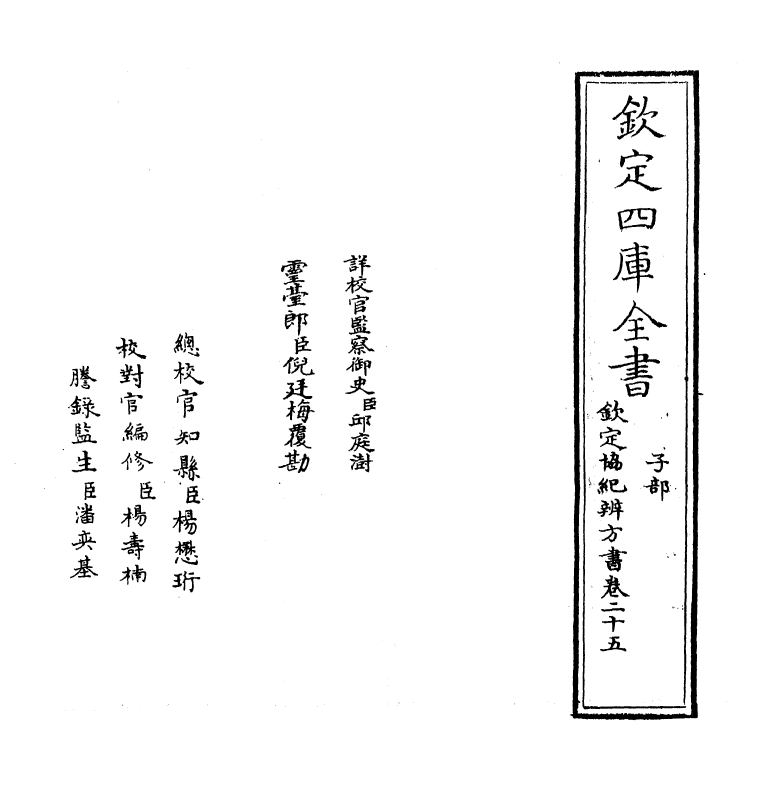 欽定四庫全書
子部
欽定協紀辨方書卷二十五
詳校官監察御史臣邱庭澍
靈臺郎臣倪廷梅覆勘
總校官知縣臣楊懋珩
校對官編修臣楊壽楠
謄錄監生臣潘奕基